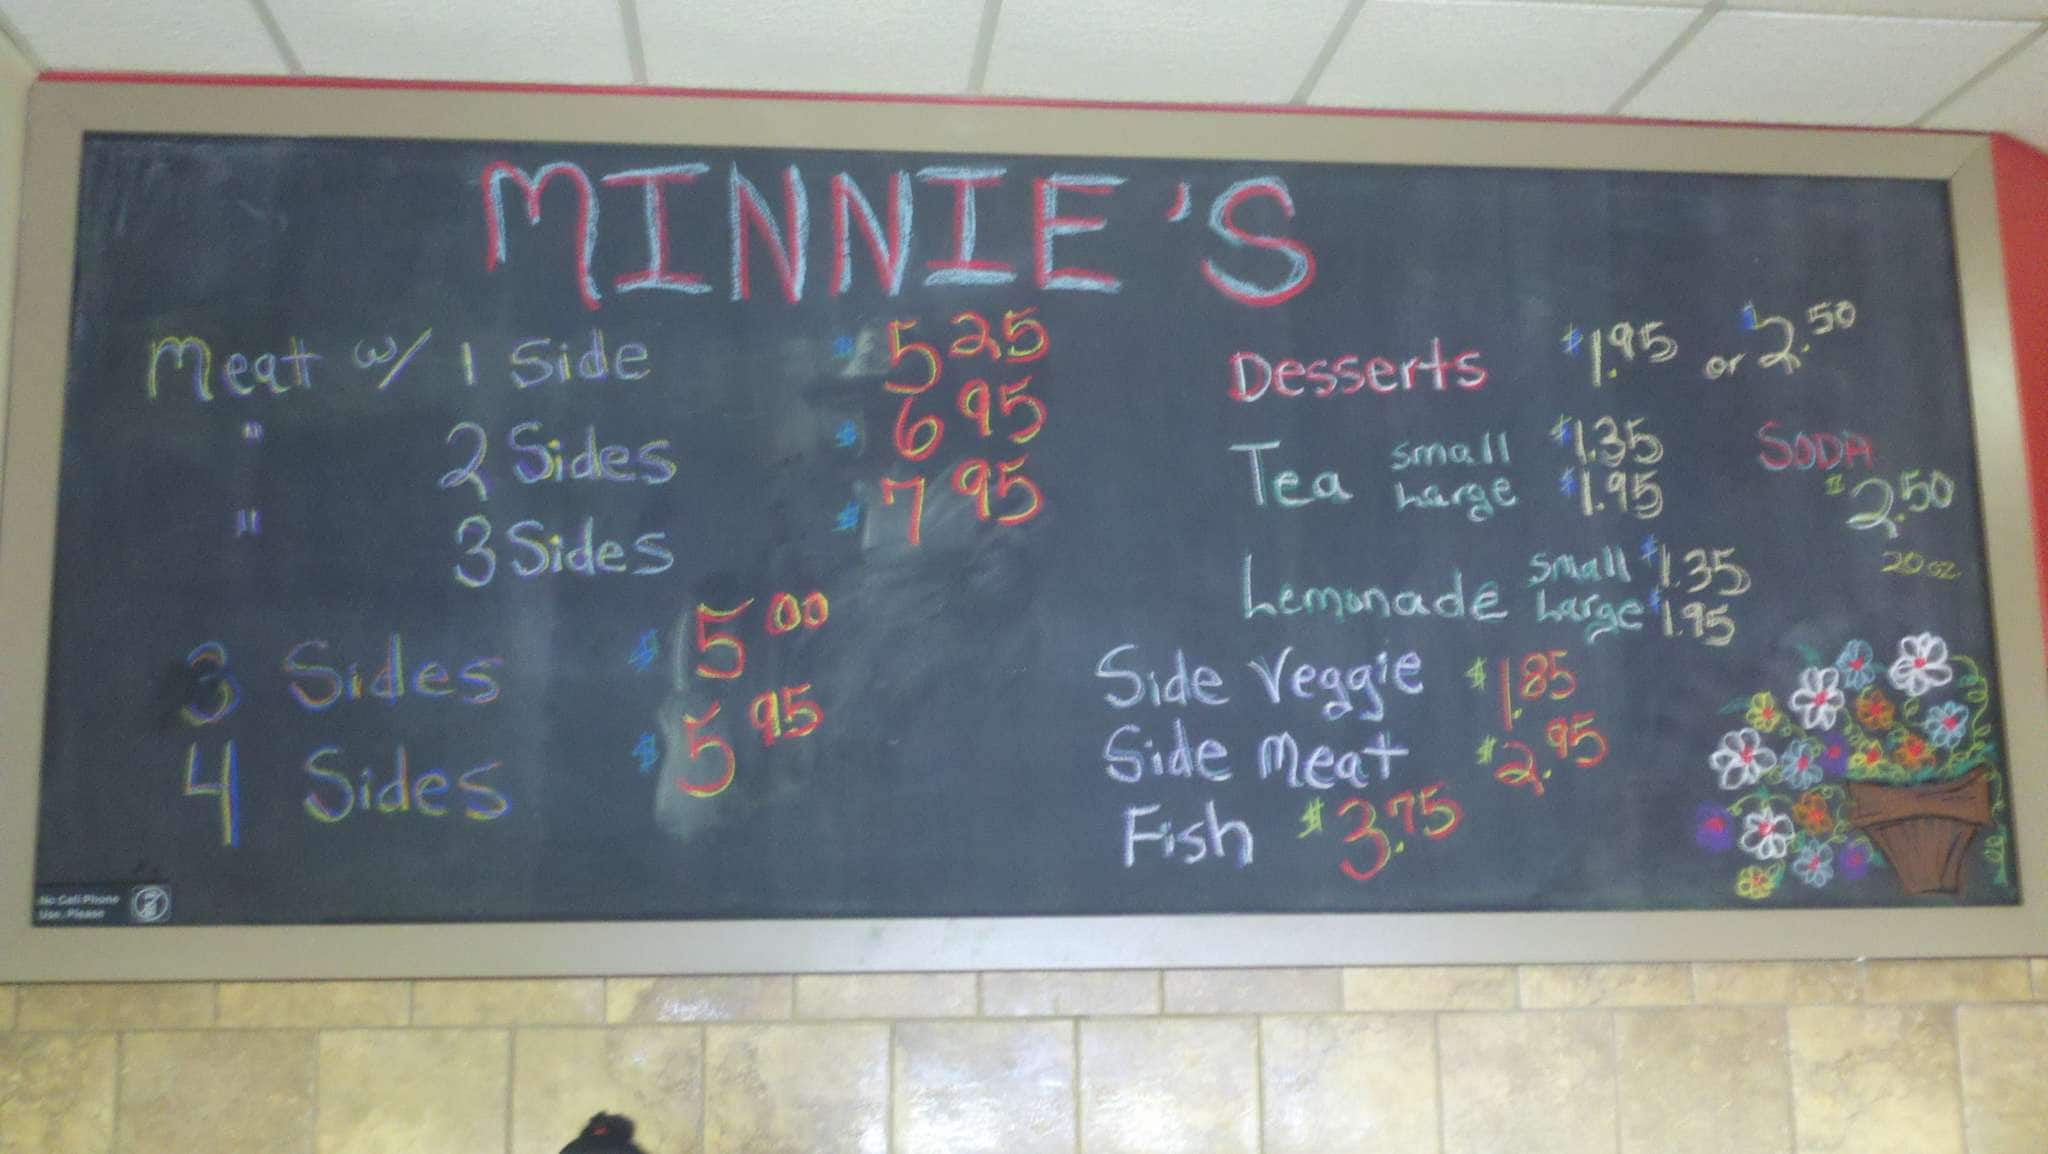 MINNIE'S
Meat w/ 1 Side $5 25
" 2 Sides $6 95
" 3 Sides $7 95
3 Sides $5 00
4 Sides $5 95
Desserts $1.95 or $2.50
Tea small $1.35
Large $1.95
SODA
$2.50
20 oz.
Lemonade small $1.35
Large $1.95
Side Veggie $1.85
Side Meat $2.95
Fish $3.75
No Cell Phone
Use, Please